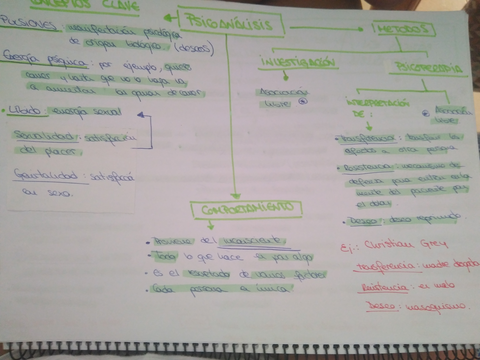 CONCEPTOS CLAVE
PULSIONES: manifestación psicológica
de origen biológico. (deseos)
Energía psíquica: por ejemplo, quieres
comer y hasta que no lo haga va
a aumentar las ganas de comer.
• Libido: energía sexual
Sexualidad: satisfacción
del placer.
Genitalidad: satisfacción
con sexo.
PSICOANÁLISIS
MÉTODOS
INVESTIGACIÓN
Asociación
libre
PSICOTERAPIA
INTERPRETACIÓN
DE:
Asociación
libre
• Transferencia: transferir los
afectos a otra persona
• Resistencia: mecanismo de
defensa para evitar
el dolor
• Deseo: deseo reprimido.
Ej.: Christian Grey
Transferencia: madre adoptiva
Resistencia: su
Deseo: masoquismo
COMPORTAMIENTO
• Proviene del inconsciente
• Todo lo que hace es por algo
• Es el resultado de varios factores
• Cada persona es única